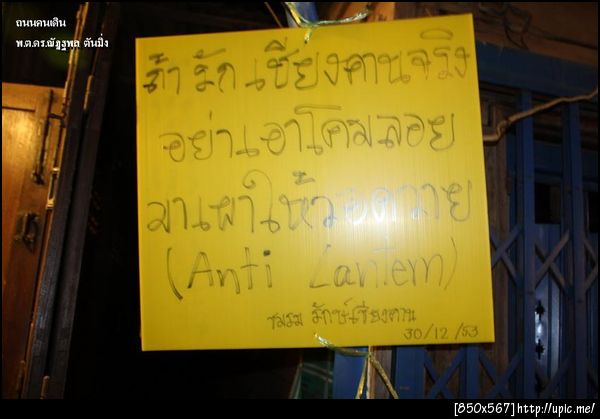 ถนนคนเดิน
พ.ต.ดร.ณัฏฐพล ตันมิ่ง
ถ้ารักเชียงคานจริง
อย่าเอาโคมลอย
มาเผาให้วอดวาย
(Anti Lantern)
ชมรม รักษ์เชียงคาน
30/12/53
[850x567] http://upic.me/